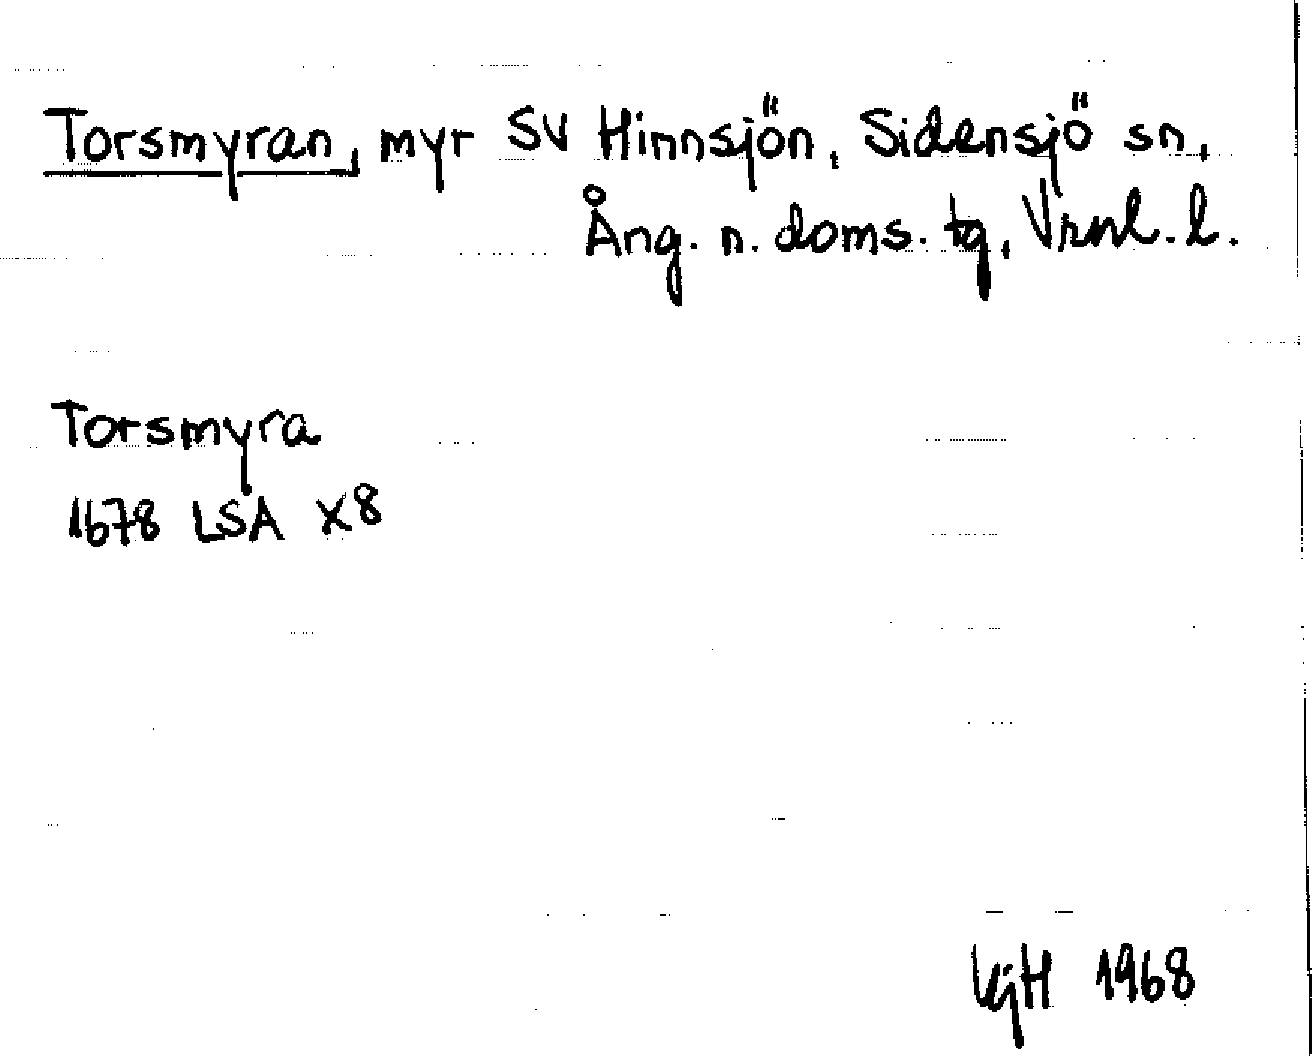 Torsmyran, myr SV Hinnsjön, Sidensjö sn,
Ång. n. doms. tg, Vrnl. l.
Torsmyra
1678 LSA X8
1968